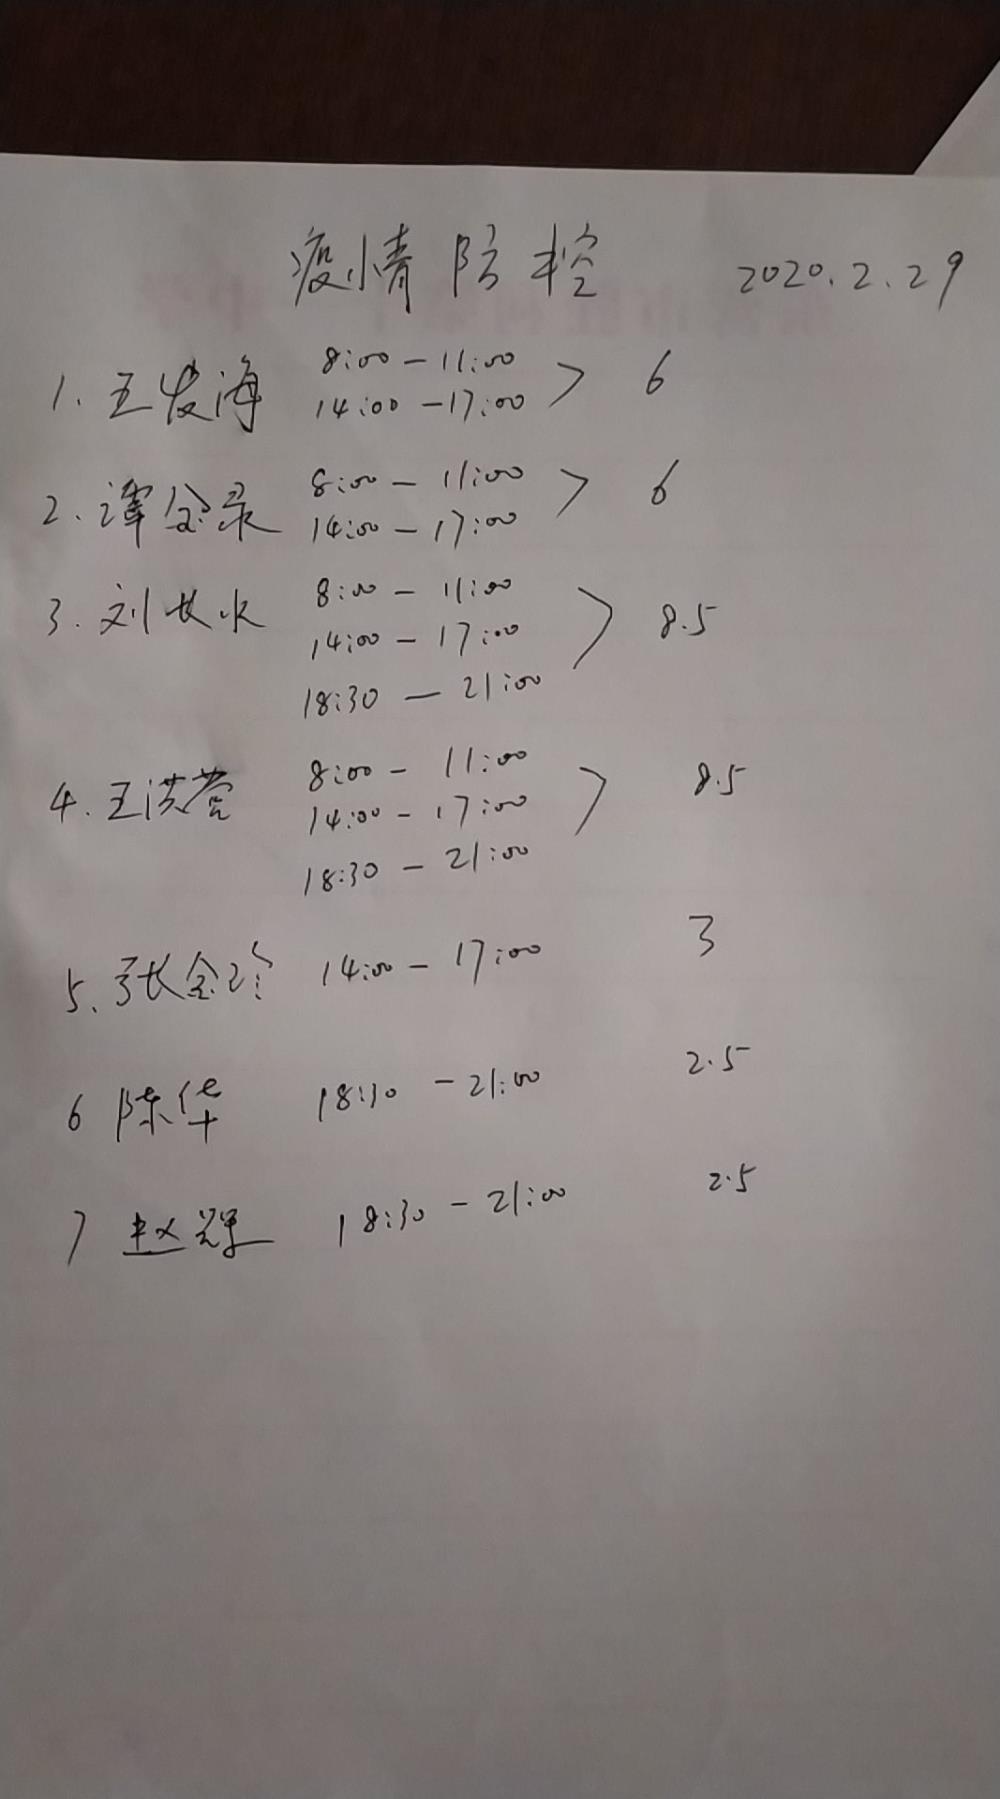 疫情防控 2020.2.29
8:00-11:00
1.王发海 > 6
14:00-17:00
8:00-11:00
2.谭金录 > 6
14:00-17:00
8:00-11:00
3.刘长水 14:00-17:00 > 8.5
18:30-21:00
8:00-11:00
4.王洪营 14:00-17:00 > 8.5
18:30-21:00
5.张金玲 14:00-17:00 3
6 陈华 18:30-21:00 2.5
7 赵辉 18:30-21:00 2.5